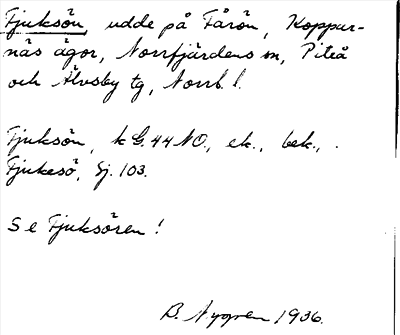 Fjuksön, udde på Fårön, Koppar-
näs ägor, Norrfjärdens sn, Piteå
och Älvsby tg, Norrb. l.
Fjuksön, k G. 44 NO., ek., bek., .
Fjukesö, Sj. 103.
Se Fjuksören!
B. Nygren 1936.